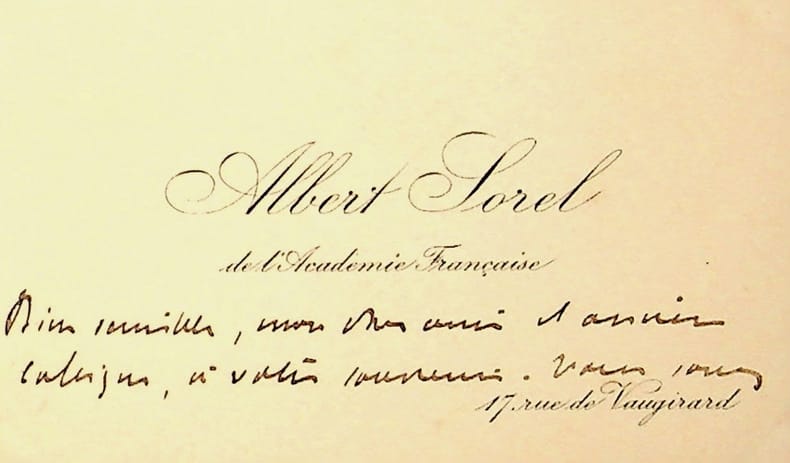 Albert Sorel
de l'Académie Française
Bien sensible, mon cher ami et ancien
collègue, à votre souvenir. Vous
17, rue de Vaugirard